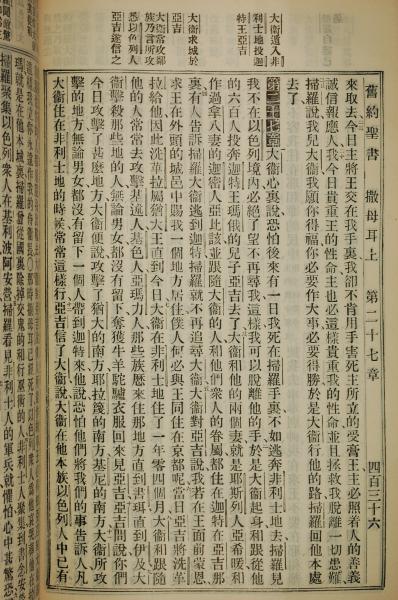 舊約聖書 撒母耳上 第二十七章 四百三十六
大衛遁入非
利士地投迦
特王亞吉
大衛求城於
亞吉
大衛常攻鄰
族乃言所攻
悉以色列人
亞吉遂信之
來取去今日主將王交在我手裏我卻不肯用手害死主所立的受膏王主必照着人的善義
誠信報應人我今日貴重王的性命主也必這樣貴重我的性命並且拯救我脫離一切患難
掃羅說我兒大衛我願你得福你必要作大事必要得勝於是大衛行他的路掃羅回他本處
去了
第二十七章大衛心裏說恐怕後來有一日我死在掃羅手裏不如逃奔非利士地去掃羅見
我不在以色列境內必絕了望不再尋我這樣我可以脫離他的手於是大衛起身和跟從他
的六百人投奔迦特王瑪俄的兒子亞吉去了大衛和他的兩個妻就是耶斯列人亞希暖和
作過拿八妻的迦密人亞比該並跟隨大衛的人和他們衆人的眷屬都住在迦特亞吉那
裏有人告訴掃羅大衛逃到迦特掃羅就不再追尋大衛大衛對亞吉說我若在王面前蒙恩
求王在外頭的城邑中賜我一個地方居住僕人何必與王同住在京都呢當日亞吉將洗革
拉給他因此洗革拉屬猶大王直到今日大衛在非利士地住了一年零四個月大衛和跟隨
他的人常常去攻擊基述人基色人亞瑪力人那些族歷來住那地方直到書珥直到伊及大
衛擊殺那些地的人無論男女都沒有留下奪獲牛羊駝驢衣服回來見亞吉亞吉問說你們
今日攻擊了甚麼地方大衛便說攻擊了猶大的南方耶拉篾的南方基尼的南方大衛所攻
擊的地方無論男女都沒有留下一個人帶到迦特來他說恐怕他們將我們的事告訴人凡
大衛住在非利士地的時候常常這樣行亞吉信了大衛說大衛在他本族以色列人中已有
瑪就是在他本城裏掃羅曾從國裏除掉交鬼的和行巫術的人非利士人聚集到書念安營
掃羅聚集以色列衆人在基利波阿安營掃羅看見非利士人的軍兵就懼怕心中甚驚恐